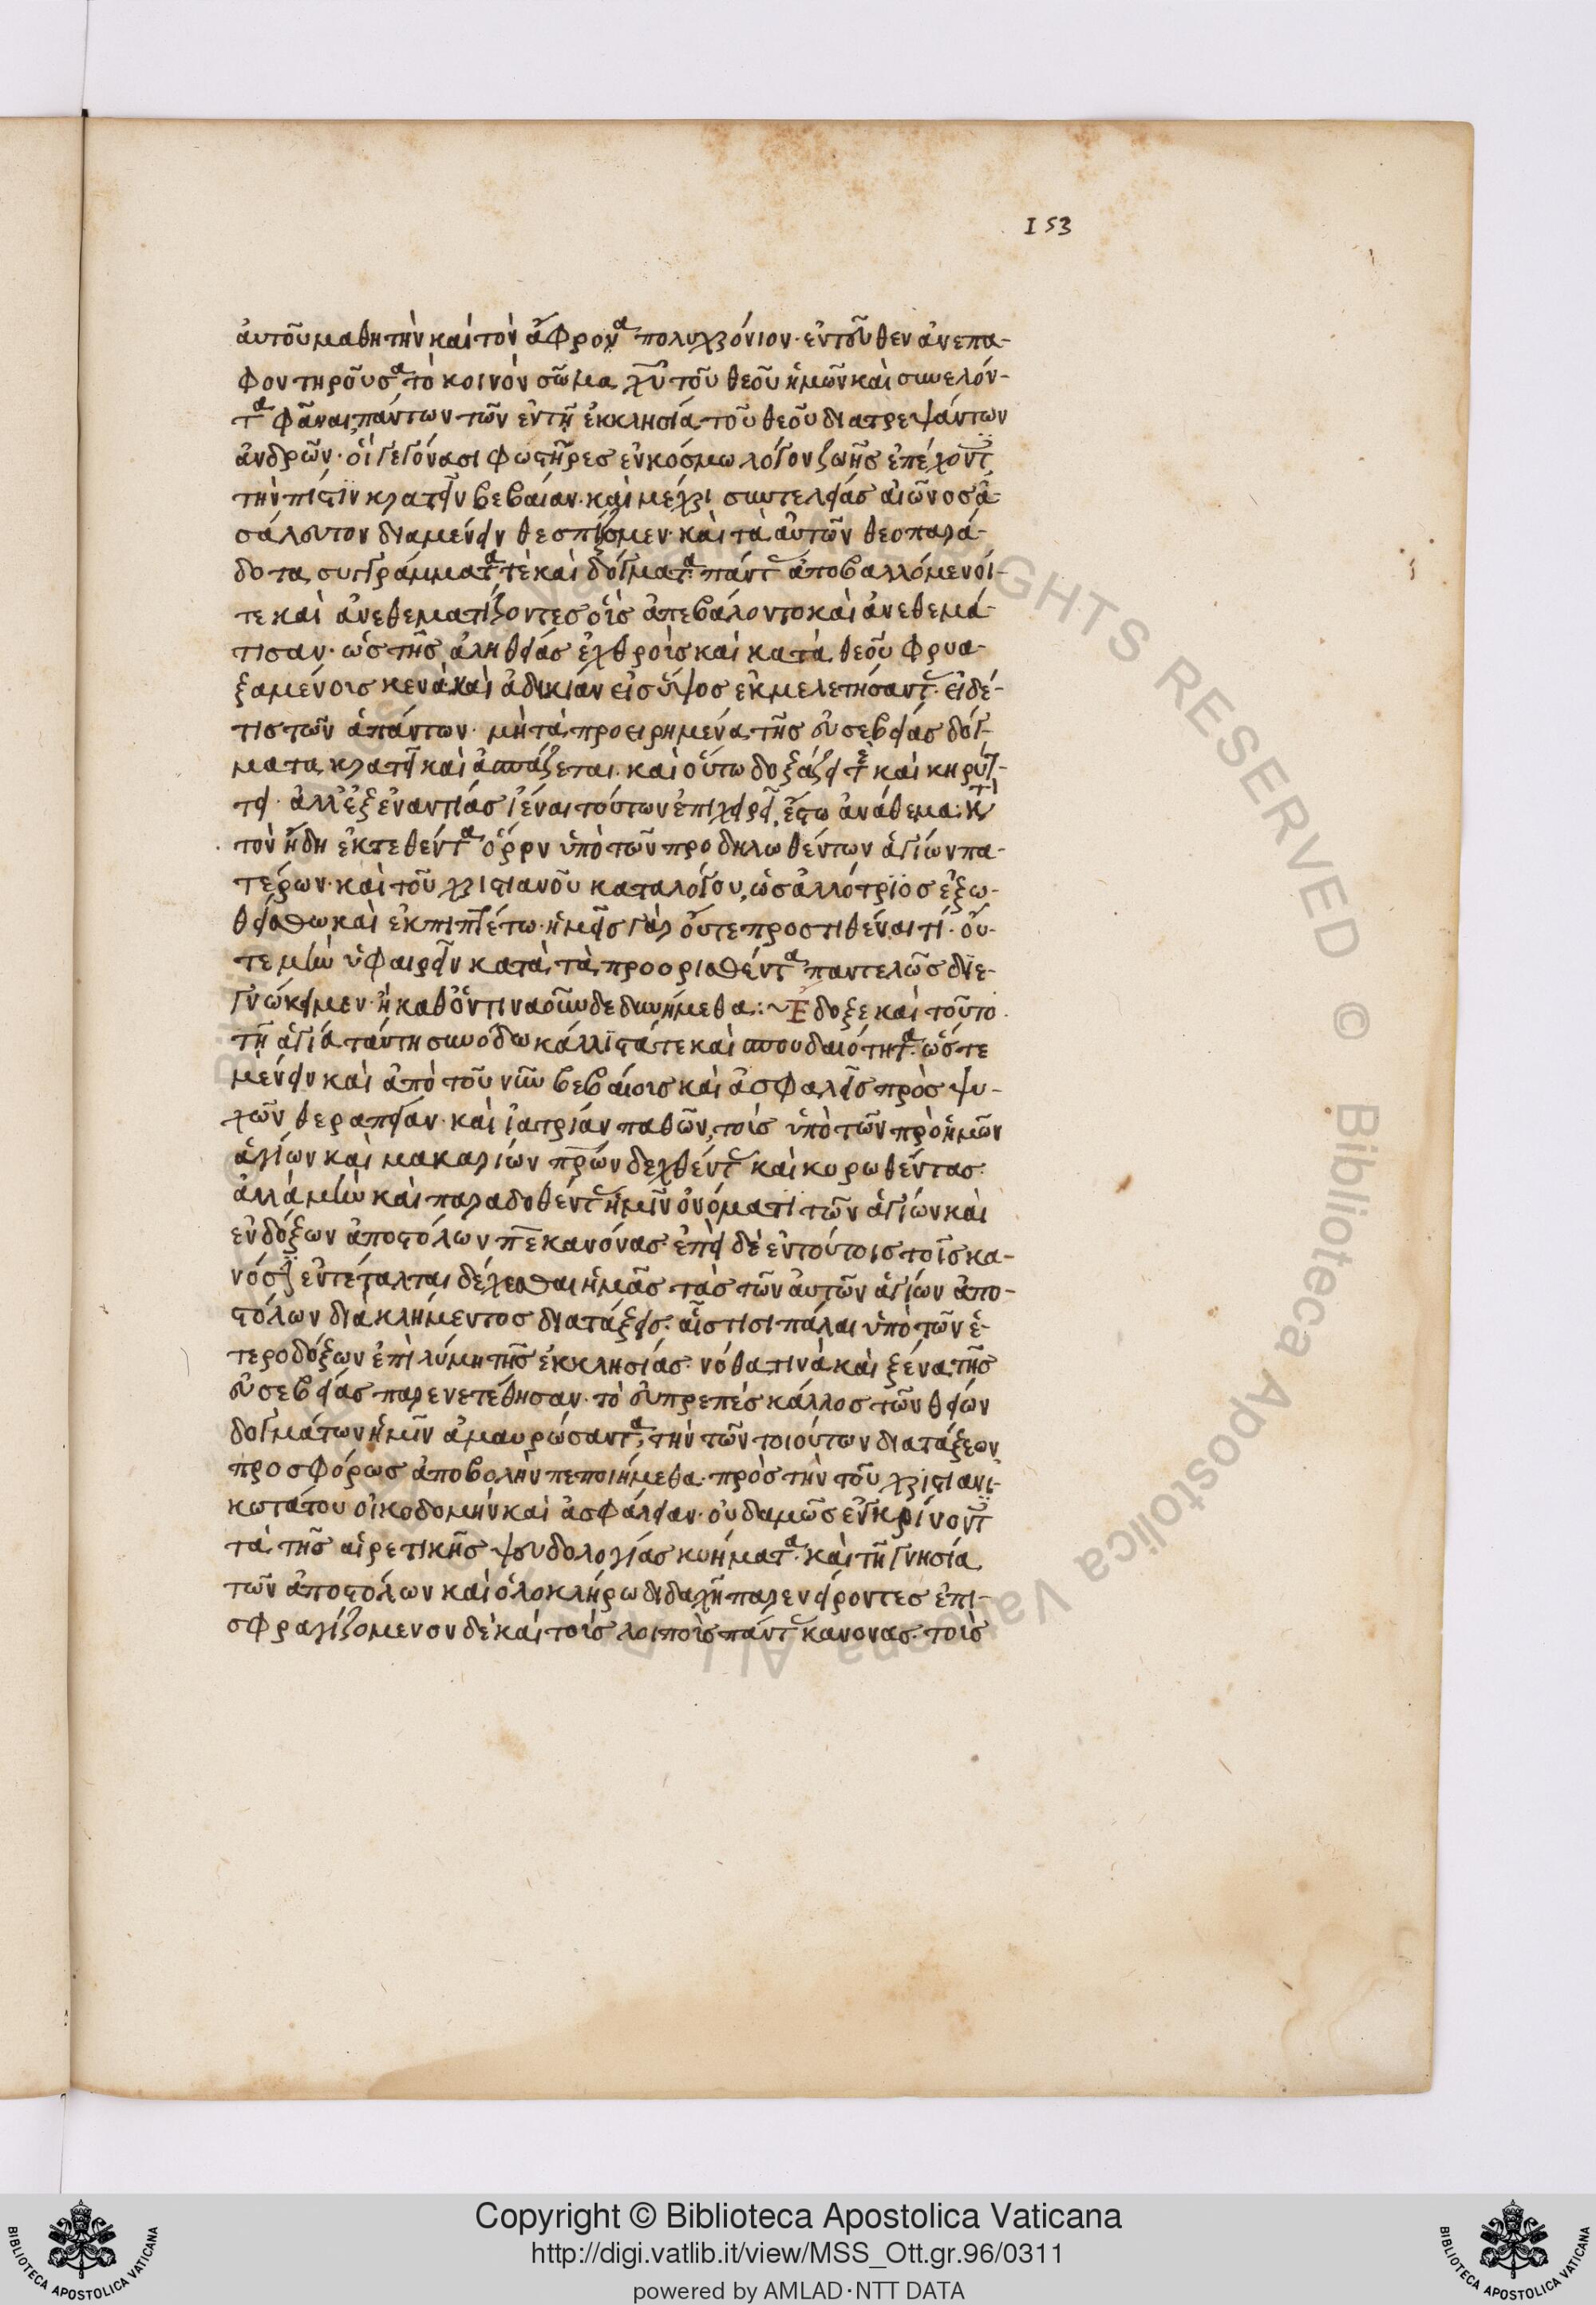 153
ἀυτοῦ μαθητὴν καὶ τὸν ἄφρονα πολυχρόνιον· ἐντεῦθεν ἀνεπα-
φον τηροῦσα τὸ κοινὸν σῶμα χυ τοῦ θεοῦ ἡμῶν καὶ συνελόν-
τα φᾶναι πάντων τῶν ἐν τῆ ἐκκλησία τοῦ θεοῦ διατρεψάντων
ἀνδρῶν· οἳ γεγόνασι φωστῆρες ἐν κόσμω λόγον ζωῆς ἐπέχοντ
τὴν πίστιν κρατεῖν βεβαίαν· καὶ μέχρι συντελείας ἀιῶνος ἀ-
σάλευτον διαμένειν θεσπίζομεν· καὶ τὰ ἀυτῶν θεοπαρά-
δοτα συγγράμματα τὲ καὶ δόγματα πάντ ἀποβαλλόμενοί-
τε καὶ ἀνεθεματίζοντες οἷς ἀπεβάλοντο καὶ ἀνεθεμά-
τισαν· ὡς τῆς ἀληθείας ἐχθροὶς καὶ κατὰ θεοῦ φρυα-
ξαμένοις κενὰ καὶ ἀδικίαν εἰς ὕψος ἐκμελετήσαντ· εἰ δέ-
τις τῶν ἁπάντων· μὴ τὰ προειρημένα τῆς ἐυσεβείας δόγ-
ματα κρατεῖ καὶ ἀσπάζεται· καὶ οὕτω δοξάζει τὲ καὶ κηρύτ-
τει· ἀλλ' ἐξ ἐναντίας ἰέναι τούτων ἐπιχειρεῖ, ἔστω ἀνάθεμα· κτ
τὸν ἤδη ἐκτεθέντα ὅρον ὑπὸ τῶν προδηλωθέντων ἁγίων πα-
τέρων· καὶ τοῦ χριστιανοῦ καταλόγου, ὡς ἀλλότριος ἐξω-
θείσθω καὶ ἐκπιπτέτω· ἡμεῖς γὰρ οὔτε προστιθέναι τί· οὔ-
τε μὴν ὑφαιρεῖν κατὰ τὰ προορισθέντα παντελῶς διε-
γνώκειμεν· ἢ καθ' ὅντινα οὖν δεδυνήμεθα :~ Ἔδοξε καὶ τοῦτο
τῆ ἁγία ταύτη συνόδω κάλλιστά τε καὶ σπουδαιότητα· ὥστε
μένειν καὶ ἀπὸ τοῦ νῦν βεβαίοις καὶ ἀσφαλεῖς πρὸς ψυ-
χῶν θεραπείαν· καὶ ἰατρίαν παθῶν, τοὶς ὑπὸ τῶν πρὸ ἡμῶν
ἁγίων καὶ μακαρίων πρων δεχθέντ καὶ κυρωθέντας·
ἀλλὰ μὴν καὶ παραδοθέντ ἡμῖν ὀνόματι τῶν ἁγίων καὶ
ἐνδόξων ἀποστόλων πε κανόνας ἐπεὶ δὲ ἐν τούτοις τοῖς κα-
νόσι ἐντέταλται δέχεσθαι ἡμᾶς τὰς τῶν ἀυτῶν ἁγίων ἀπο-
στόλων διὰ κλήμεντος διατάξεις· αἷς τισι πάλαι ὑπὸ τῶν ἑ-
τεροδόξων ἐπὶ λύμη τῆς ἐκκλησίας· νόθα τινὰ καὶ ξένα τῆς
ἐυσεβείας παρενετέθησαν· τὸ ἐυπρεπὲς κάλλος τῶν θείων
δογμάτων ἡμῖν ἀμαυρώσαντα, τὴν τῶν τοιούτων διατάξεων
προσφόρως ἀποβολὴν πεποιήμεθα· πρὸς τὴν τοῦ χριστιανι-
κωτάτου οἰκοδομὴν καὶ ἀσφάλειαν· οὐδαμῶς ἐγκρίνοντ
τὰ τῆς αἱρετικῆς ψευδολογίας κυήματα· καὶ τῆ γνησία
τῶν ἀποστόλων καὶ ὁλοκλήρω διδαχῆ παρενείροντες ἐπι-
σφραγίζομεν δὲ καὶ τοὶς λοιποὶς πάντ κανονας· τοὶς
© Biblioteca Apostolica Vaticana ALL RIGHTS RESERVED
Copyright © Biblioteca Apostolica Vaticana
http://digi.vatlib.it/view/MSS_Ott.gr.96/0311
powered by AMLAD·NTT DATA
BIBLIOTECA APOSTOLICA VATICANA
BIBLIOTECA APOSTOLICA VATICANA